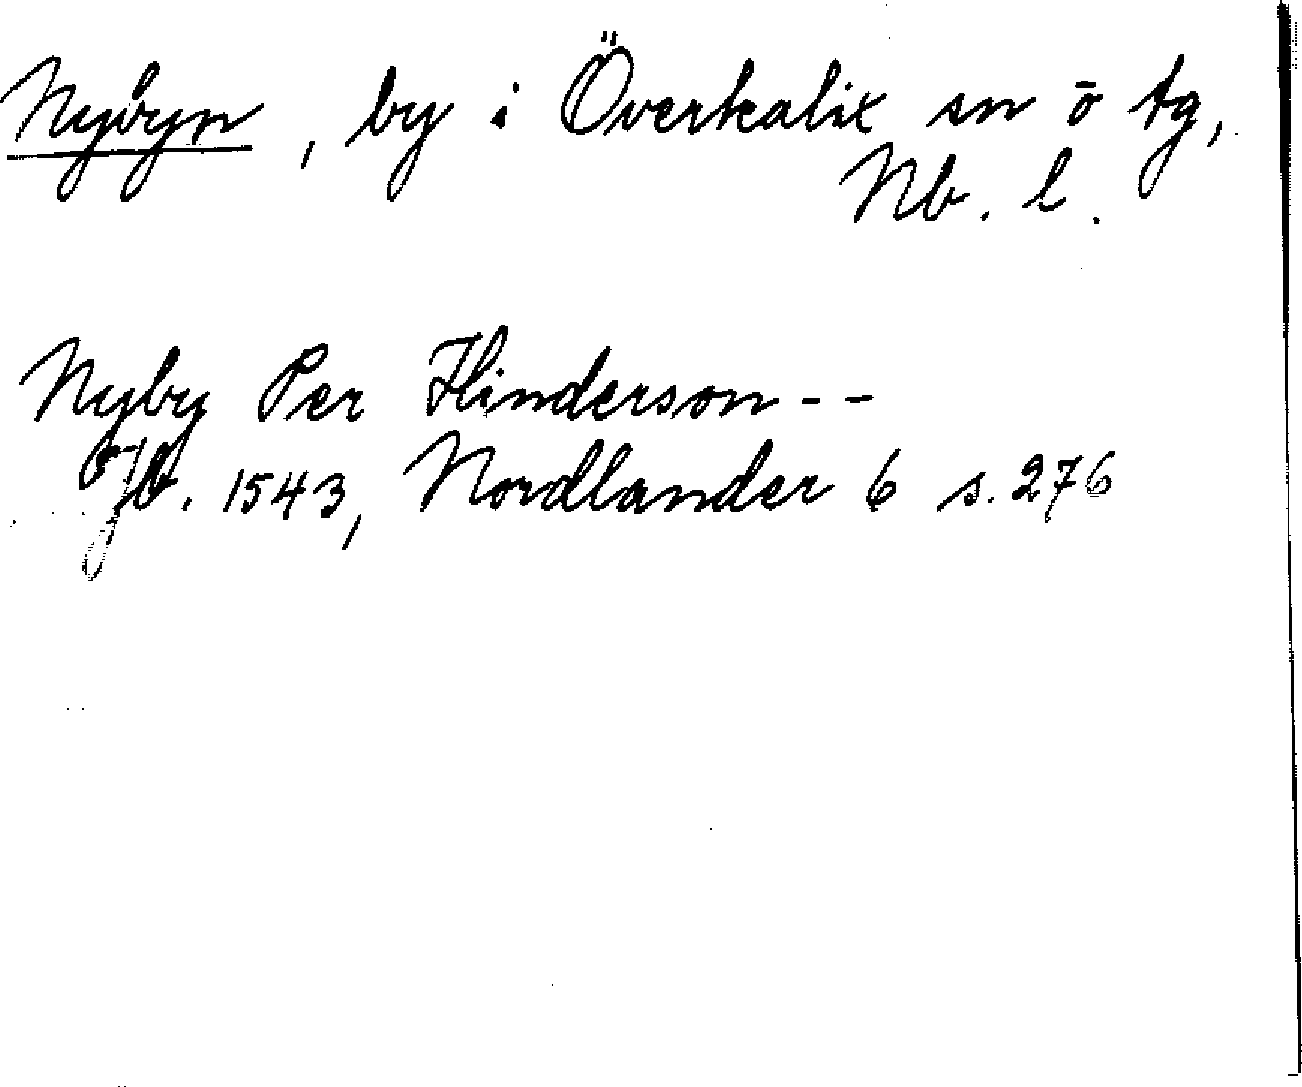 Nybyn, by i Överkalix sn o tg,
Nb. l.
Nyby Per Hinderson --
Jb. 1543, Nordlander 6 s. 276